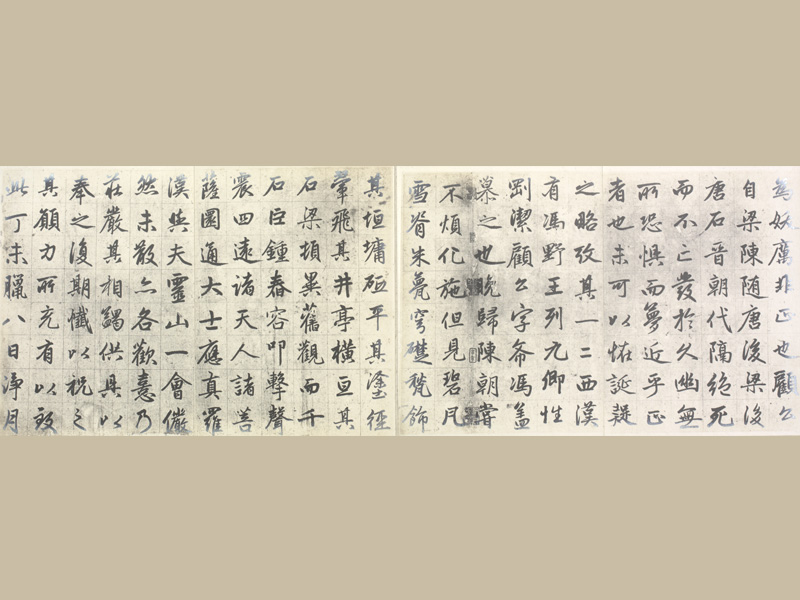 為妖厲非正也顧公
自梁陳隨唐後梁後
唐石晉朝代隔絕死
而不亡發於久幽無
所恐懼而夢近乎正
者也未可以怪誕疑
之略攷其一二西漢
有馮野王列九卿性
剛潔顧公字希馮蓋
慕之也晚歸陳朝嘗
不煩化施但見碧凡
雪脊朱甍穹礎甃飾
其垣墉砥平其塗徑
翬飛其井亭橫亘其
石梁頓異舊觀而千
石巨鍾舂容叩擊聲
震四遠諸天人諸善
薩圓通大士應真羅
漢與夫靈山一會儼
然未散亦各歡憙乃
莊嚴其相蠲供具以
奉之復期懺以祝之
其願力所充有以致
此丁未臘八日淨月